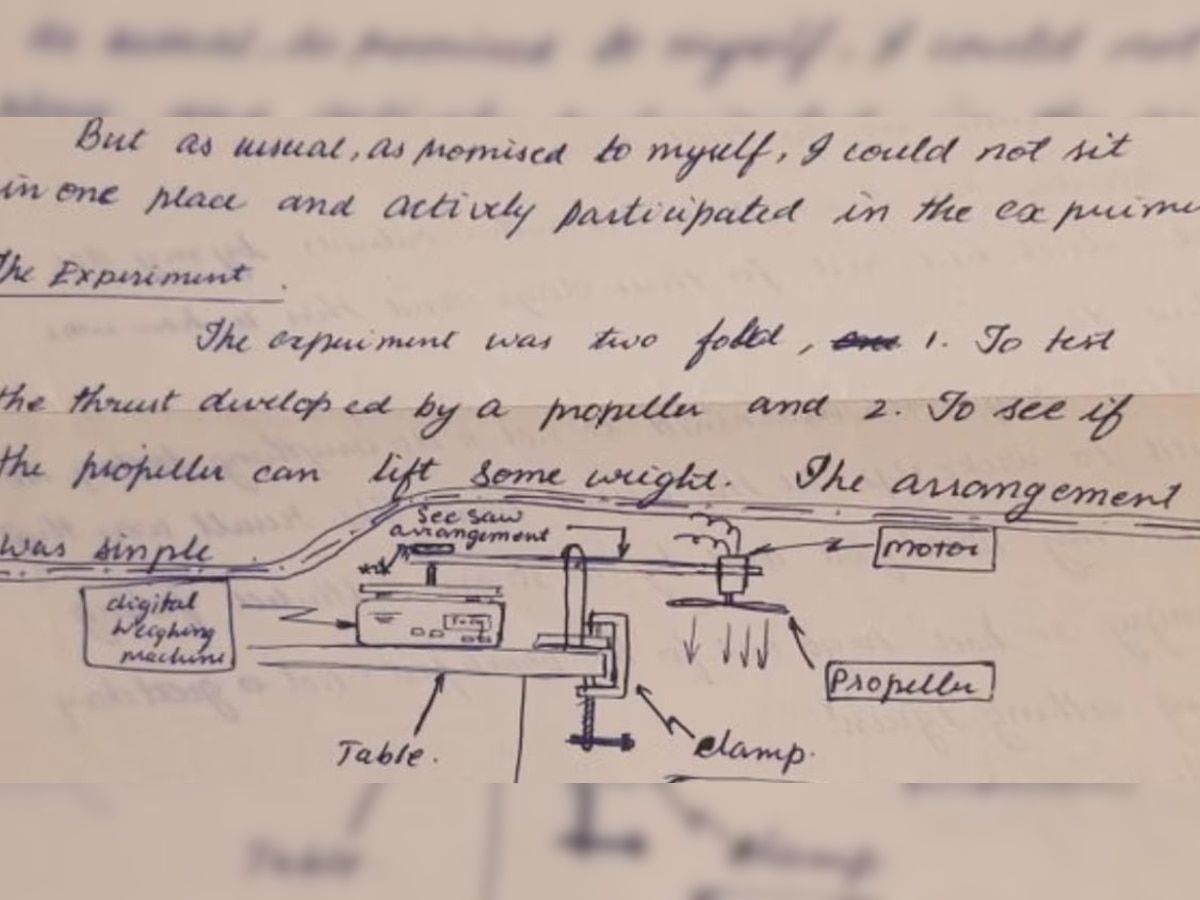 But as usual, as promised to myself, I could not sit
in one place and actively participated in the experime
The Experiment.
The experiment was two fold, 1. To test
the thrust developed by a propeller and 2. To see if
the propeller can lift some weight. The arrangement
was simple
See saw
arrangement
motor
digital
weighing
machine
Propeller
Table.
clamp.